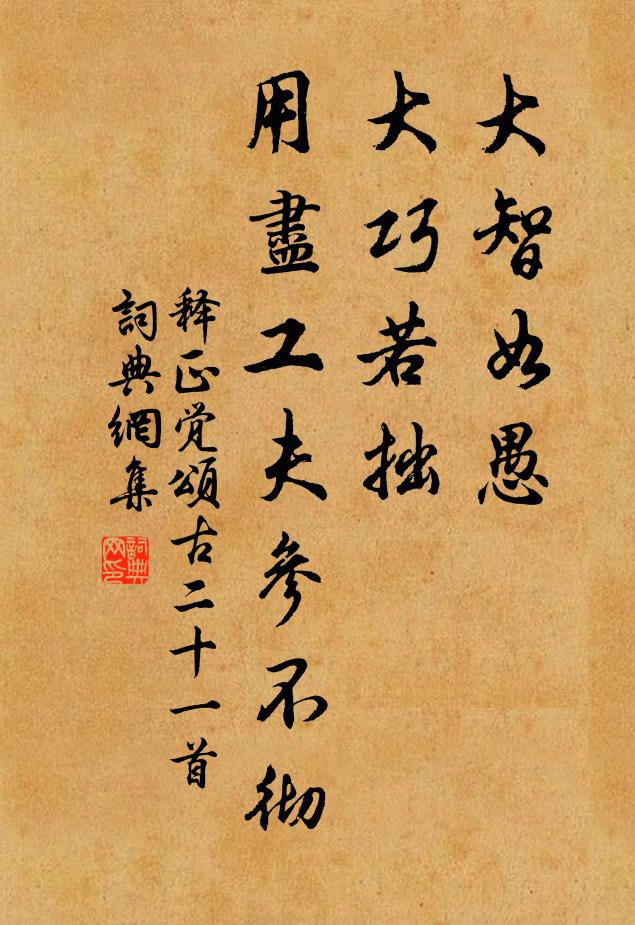 大智如愚
大巧若拙
用盡工夫參不彻
释正觉頌古二十一首
詞典網集
詞典網印